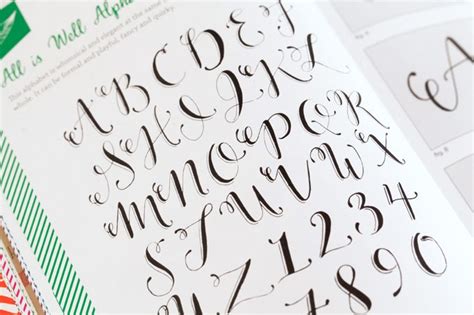 All is Well Alpha
This alphabet is whimsical and elegant at the same
whole. It can be formal and playful, fancy and quirky.
A B C D E F
G H I J K L
M N O P Q R
S T U V W X
Y Z 1 2 3 4
5 6 7 8 9 0
A